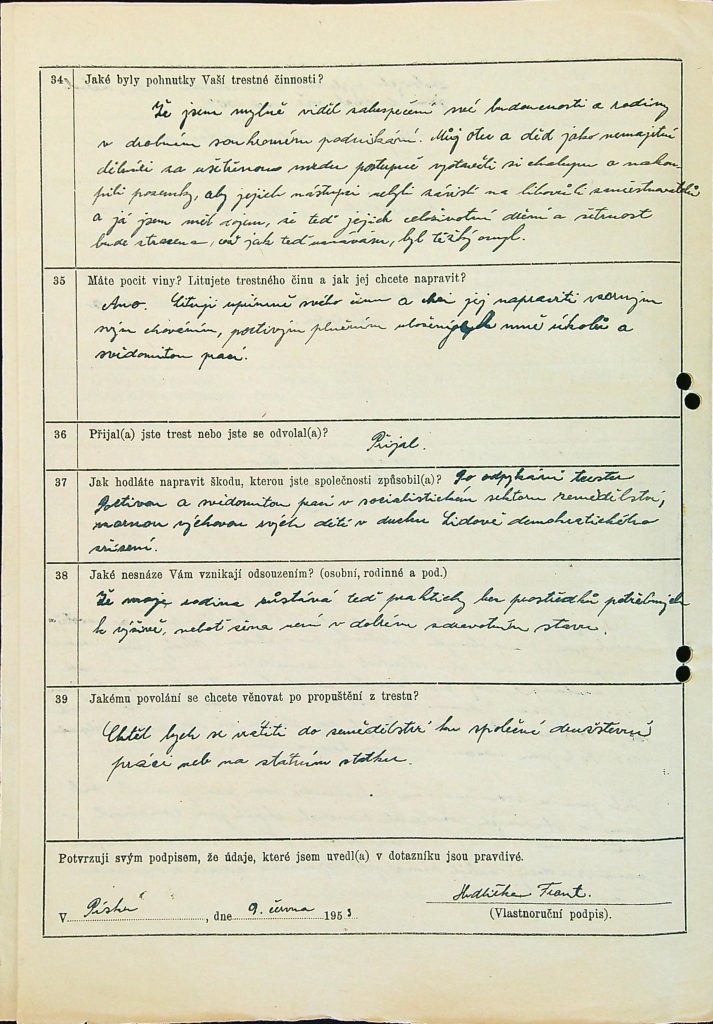 34 Jaké byly pohnutky Vaší trestné činnosti?
Že jsem mylně viděl zabezpečení své budoucnosti a rodiny
v drobném soukromém podnikání. Můj otec a děd jako nemajetní
dělníci za ušetřenou mzdu postupně vystavěli si chalupu a nakou-
pili pozemky, aby jejich nástupci nebyli závislí na libovůli zaměstnavatelů
a já jsem měl dojem, že teď jejich celoživotní dření a šetrnost
bude ztracena, což jak teď uznávám, byl těžký omyl.
35 Máte pocit viny? Litujete trestného činu a jak jej chcete napravit?
Ano. Lituji upřímně svého činu a chci jej napraviti vzorným
svým chováním, poctivým plněním uložených mně úkolů a
svědomitou prací.
36 Přijal(a) jste trest nebo jste se odvolal(a)?
Přijal.
37 Jak hodláte napravit škodu, kterou jste společnosti způsobil(a)? Po odpykání trestu
Poctivou a svědomitou prací v socialistickém sektoru zemědělství,
výchovou svých dětí v duchu Lidově demokratického
zřízení.
38 Jaké nesnáze Vám vznikají odsouzením? (osobní, rodinné a pod.)
Že moje rodina zůstává teď prakticky bez prostředků potřebných
k výživě, neboť žena není v dobrém zdravotním stavu.
39 Jakému povolání se chcete věnovat po propuštění z trestu?
Chtěl bych se vrátiti do zemědělství ku společné družstevní
práci neb na státním statku.
Potvrzuji svým podpisem, že údaje, které jsem uvedl(a) v dotazníku jsou pravdivé.
Hrdlička Frant.
V Písku, dne 9. června 1953
(Vlastnoruční podpis).